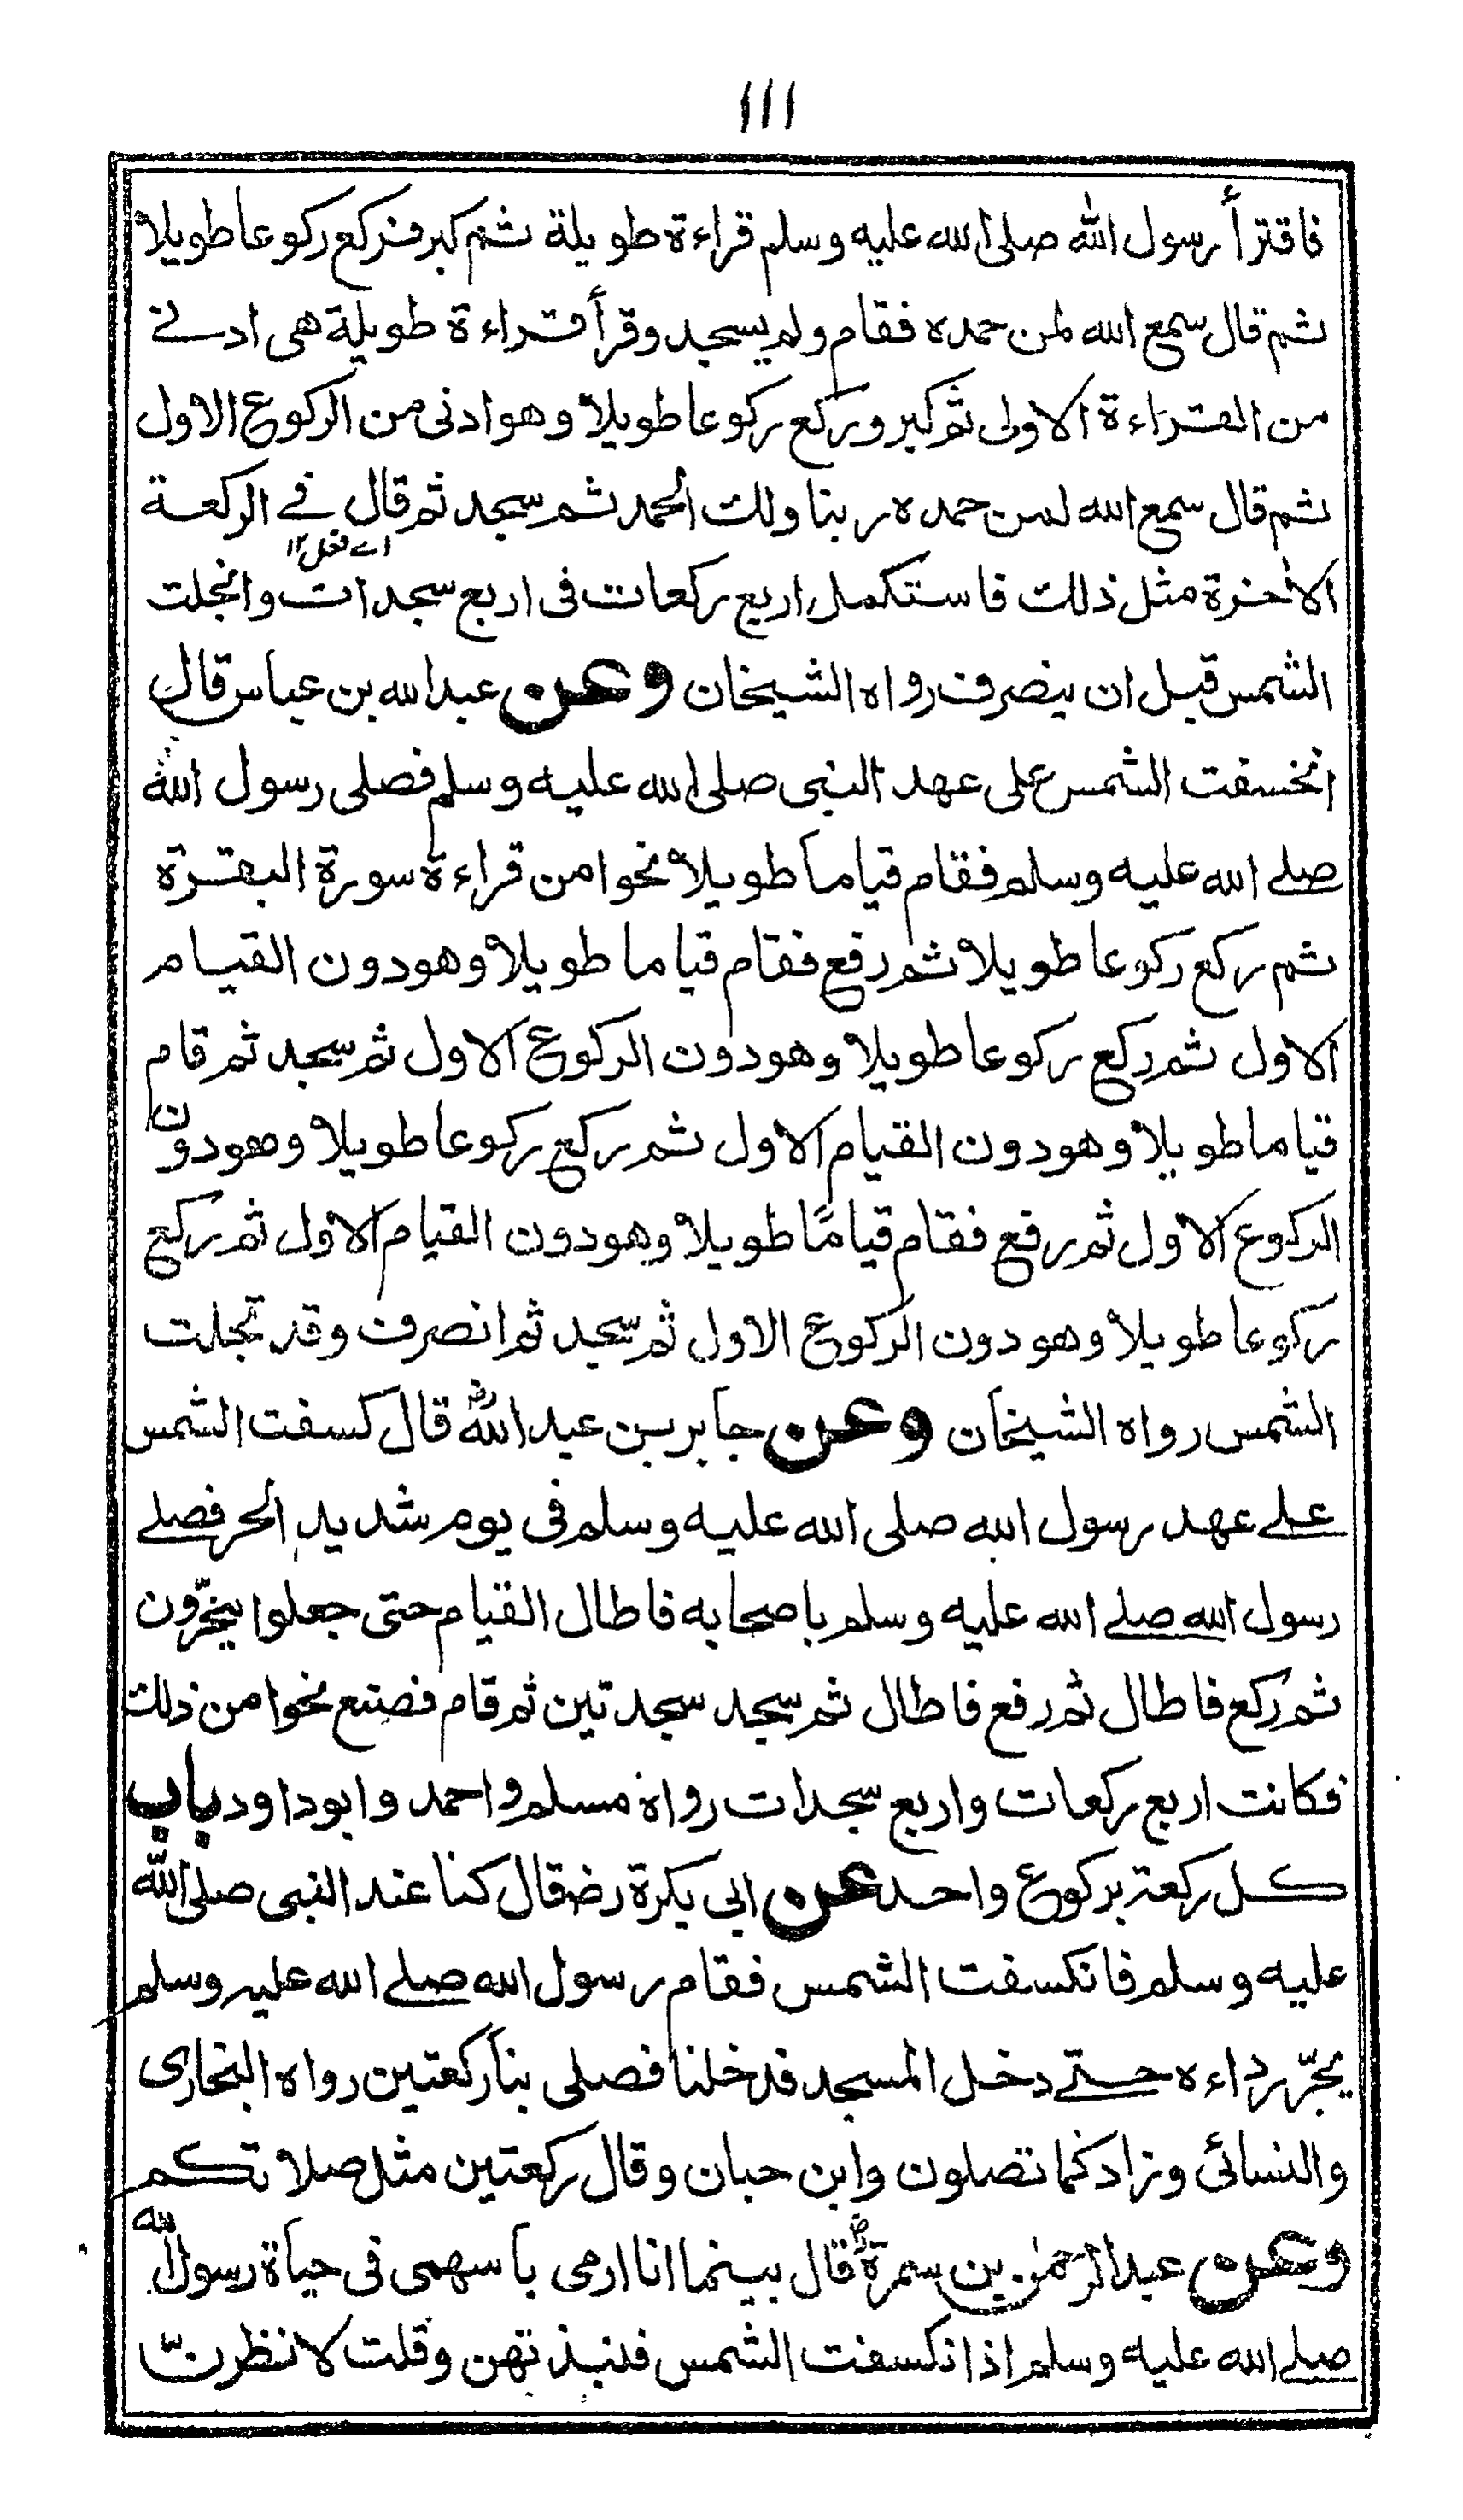 ١١١
فاقترأ رسول الله صلى الله عليه وسلم قراءة طويلة ثم كبر فركع ركوعا طويلا
ثم قال سمع الله لمن حمده فقام ولم يسجد وقرأ قراءة طويلة هى ادنے
من القراءة الاولى ثم كبر وركع ركوعا طويلا وهو ادنى من الركوع الاول
ثم قال سمع الله لمن حمده ربنا ولك الحمد ثم سجد ثم قال فے الركعة
اے فعل ١٢
الاخرة مثل ذلك فاستكمل اربع ركعات فى اربع سجدات وانجلت
الشمس قبل ان ينصرف رواه الشيخان وعن عبد الله بن عباس قال
انخسفت الشمس على عهد النبى صلى الله عليه وسلم فصلى رسول الله
صلے الله عليه وسلم فقام قياما طويلا نحوا من قراءة سورة البقرة
ثم ركع ركوعا طويلا ثم رفع فقام قياما طويلا وهو دون القيام
الاول ثم ركع ركوعا طويلا وهو دون الركوع الاول ثم سجد ثم قام
قياما طويلا وهو دون القيام الاول ثم ركع ركوعا طويلا وهو دون
الركوع الاول ثم رفع فقام قيامًا طويلا وهو دون القيام الاول ثم ركع
ركوعا طويلا وهو دون الركوع الاول ثم سجد ثم انصرف وقد تجلت
الشمس رواه الشيخان وعن جابر بن عبد اللهؓ قال كسفت الشمس
علے عهد رسول الله صلى الله عليه وسلم فى يوم شديد الحر فصلے
رسول الله صلے الله عليه وسلم باصحابه فاطال القيام حتى جعلوا يخرّون
ثم ركع فاطال ثم رفع فاطال ثم سجد سجدتين ثم قام فصنع نحوا من ذلك
فكانت اربع ركعات واربع سجدات رواه مسلم واحمد وابو داود باب
كل ركعة بركوع واحد عن ابى بكرة رضـ قال كنا عند النبى صلى الله
عليه وسلم فانكسفت الشمس فقام رسول الله صلے الله عليه وسلم
يجرّ رداءه حتے دخل المسجد فدخلنا فصلى بنا ركعتين رواه البخارى
والنسائى وزاد كما تصلون وابن حبان وقال ركعتين مثل صلاتكم
وعن عبد الرحمٰن بن سمرةؓ قال بينما انا ارمى باسهمى فى حياة رسول الله
صلے الله عليه وسلم اذ انكسفت الشمس فنبذتهن وقلت لانظرنّ